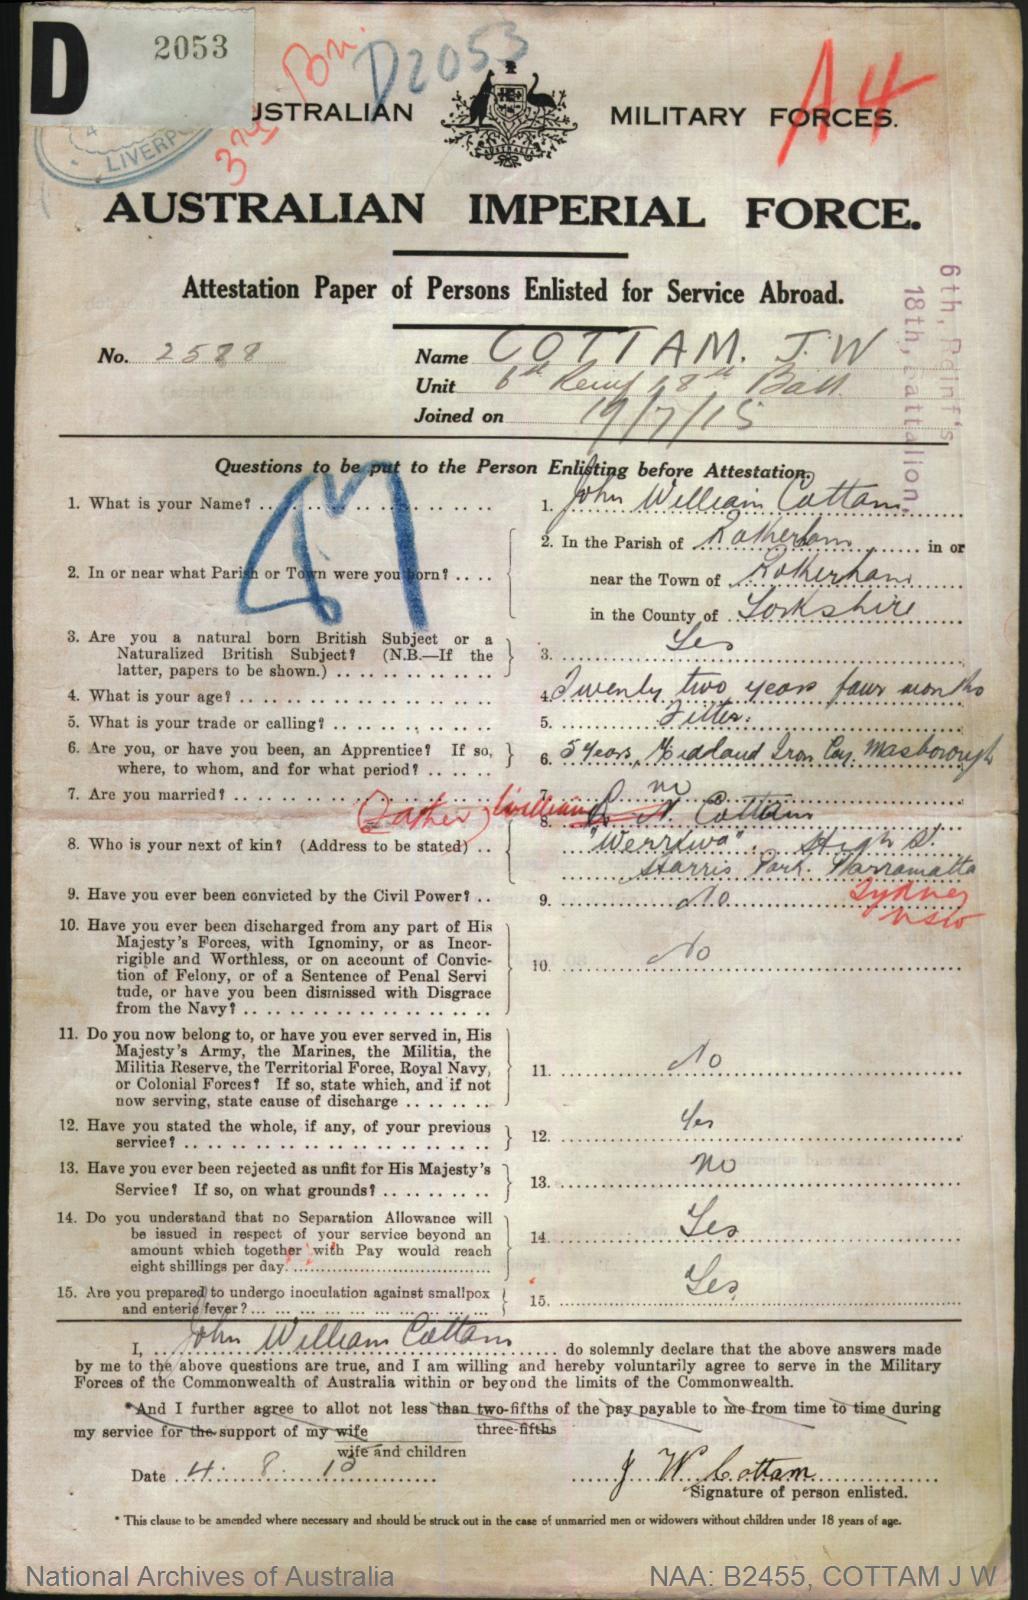 D 2053
D2053
3rd Bn.
A4
LIVERPO
USTRALIAN MILITARY FORCES.
AUSTRALIA
AUSTRALIAN IMPERIAL FORCE.
Attestation Paper of Persons Enlisted for Service Abroad.
6th, Reinf's
18th, Battalion.
No. 2588 Name COTTAM. J.W
Unit 6th Reinf 18th Batt.
Joined on 19/7/15
Questions to be put to the Person Enlisting before Attestation.
1. What is your Name? 1. John William Cottam.
2. In or near what Parish or Town were you born? 2. In the Parish of Rotherham, in or
near the Town of Rotherham
in the County of Yorkshire
3. Are you a natural born British Subject or a
Naturalized British Subject? (N.B.—If the
latter, papers to be shown.) 3. Yes
4. What is your age? 4. Twenty two years four months
5. What is your trade or calling? 5. Fitter.
6. Are you, or have you been, an Apprentice? If so,
where, to whom, and for what period? 6. 5 Years, Midland Iron Coy. Masborough
7. Are you married? 7. no
(Father) William
8. Who is your next of kin? (Address to be stated) 8. Cottam
"Werriwa". High St.
Harris Park. Parramatta
Sydney
NSW
9. Have you ever been convicted by the Civil Power? 9. No
10. Have you ever been discharged from any part of His
Majesty's Forces, with Ignominy, or as Incor-
rigible and Worthless, or on account of Convic-
tion of Felony, or of a Sentence of Penal Servi
tude, or have you been dismissed with Disgrace
from the Navy? 10. No
11. Do you now belong to, or have you ever served in, His
Majesty's Army, the Marines, the Militia, the
Militia Reserve, the Territorial Force, Royal Navy,
or Colonial Forces? If so, state which, and if not
now serving, state cause of discharge 11. No
12. Have you stated the whole, if any, of your previous
service? 12. Yes
13. Have you ever been rejected as unfit for His Majesty's
Service? If so, on what grounds? 13. No
14. Do you understand that no Separation Allowance will
be issued in respect of your service beyond an
amount which together with Pay would reach
eight shillings per day. 14. Yes
15. Are you prepared to undergo inoculation against smallpox
and enteric fever? 15. Yes.
I, John William Cottam do solemnly declare that the above answers made
by me to the above questions are true, and I am willing and hereby voluntarily agree to serve in the Military
Forces of the Commonwealth of Australia within or beyond the limits of the Commonwealth.
*And I further agree to allot not less than two-fifths of the pay payable to me from time to time during
three-fifths
my service for the support of my wife
wife and children
Date 4. 8. 15
J W Cottam
Signature of person enlisted.
* This clause to be amended where necessary and should be struck out in the case of unmarried men or widowers without children under 18 years of age.
National Archives of Australia NAA: B2455, COTTAM J W